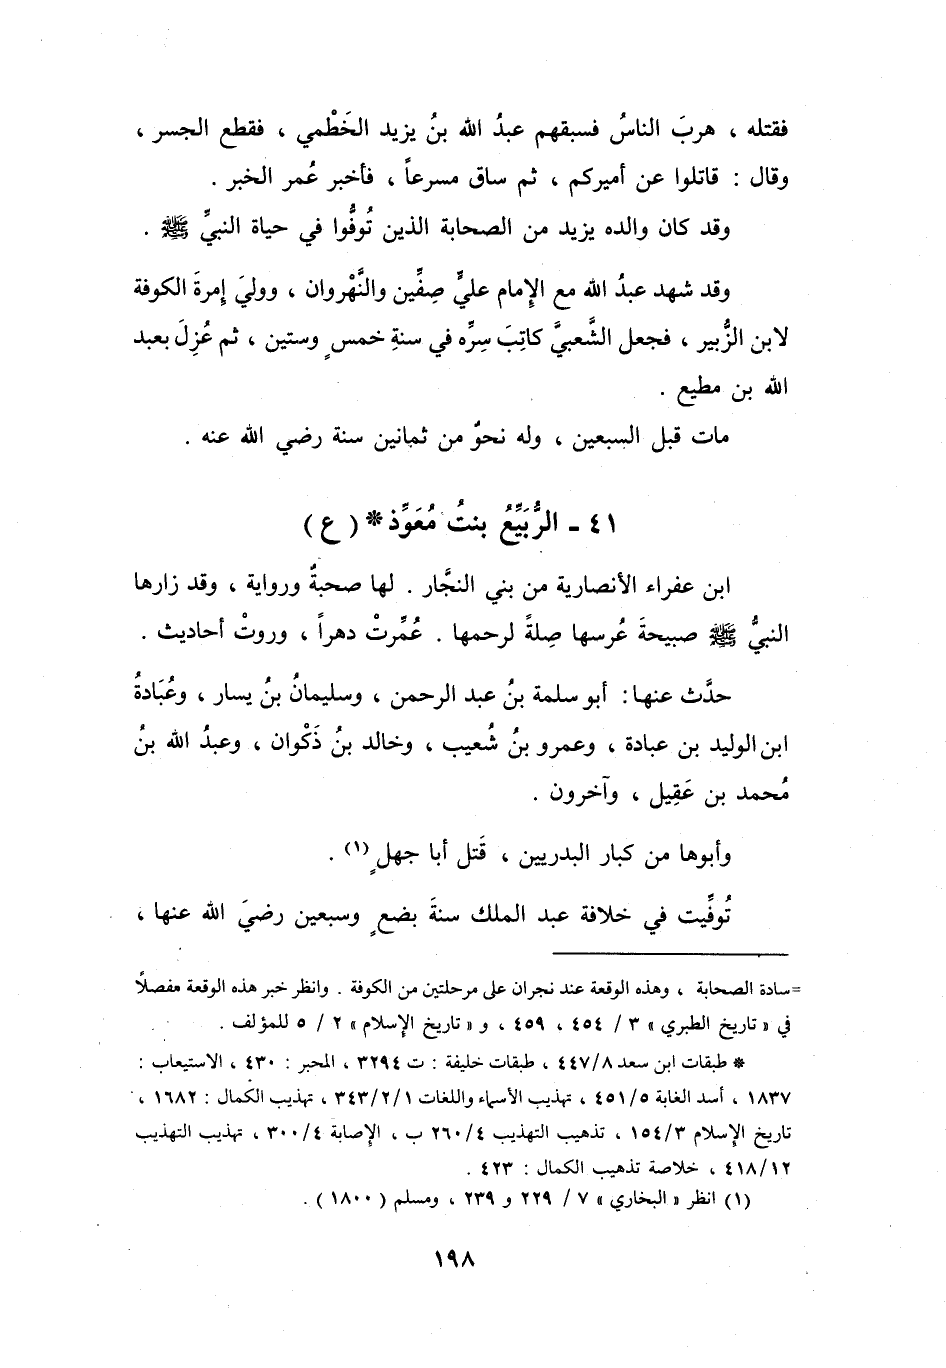 فقتله ، هربَ الناسُ فسبقهم عبدُ الله بنُ يزيد الخَطْمي ، فقطع الجسر ،
وقال : قاتلوا عن أميركم ، ثم ساق مسرعاً ، فأخبر عُمر الخبر .
وقد كان والده يزيد من الصحابة الذين تُوفُّوا في حياة النبيِّ ﷺ .
وقد شهد عبدُ الله مع الإمام عليٍّ صِفِّين والنَّهْروان ، ووليَ إمرةَ الكوفة
لابن الزُّبير ، فجعل الشَّعبيَّ كاتِبَ سِرِّه في سنةِ خمسٍ وستين ، ثم عُزِلَ بعبد
الله بن مطيع .
مات قبل السبعين ، وله نحوٌ من ثمانين سنة رضي الله عنه .
٤١ - الرُّبَيِّعُ بنتُ مُعَوِّذ * ( ع )
ابن عفراء الأنصارية من بني النجَّار . لها صحبةٌ ورواية ، وقد زارها
النبيُّ ﷺ صبيحةَ عُرسها صِلةً لرحمها . عُمِّرتْ دهراً ، وروتْ أحاديث .
حدَّث عنها: أبو سلمة بنُ عبد الرحمن ، وسليمانُ بنُ يسار ، وعُبَادةُ
ابن الوليد بن عبادة ، وعمرو بنُ شُعيب ، وخالد بنُ ذَكْوان ، وعبدُ الله بنُ
مُحمد بن عَقِيل ، وآخرون .
وأبوها من كبار البدريين ، قَتل أبا جهلٍ (١) .
تُوفِّيت في خلافة عبد الملك سنةَ بضعٍ وسبعين رضيَ الله عنها ،
=سادة الصحابة ، وهذه الوقعة عند نجران على مرحلتين من الكوفة . وانظر خبر هذه الوقعة مفصلاً
في « تاريخ الطبري » ٣ / ٤٥٤ ، ٤٥٩ ، و « تاريخ الإسلام » ٢ / ٥ للمؤلف .
* طبقات ابن سعد ٤٤٧/٨ ، طبقات خليفة : ت ٣٢٩٤ ، المحبر : ٤٣٠ ، الاستيعاب :
١٨٣٧ ، أسد الغابة ٤٥١/٥ ، تهذيب الأسماء واللغات ٣٤٣/٢/١ ، تهذيب الكمال : ١٦٨٢ ،
تاريخ الإسلام ١٥٤/٣ ، تذهيب التهذيب ٢٦٠/٤ ب ، الإصابة ٣٠٠/٤ ، تهذيب التهذيب
٤١٨/١٢ ، خلاصة تذهيب الكمال : ٤٢٣ .
(١) انظر « البخاري » ٧ / ٢٢٩ و ٢٣٩ ، ومسلم ( ١٨٠٠ ) .
١٩٨